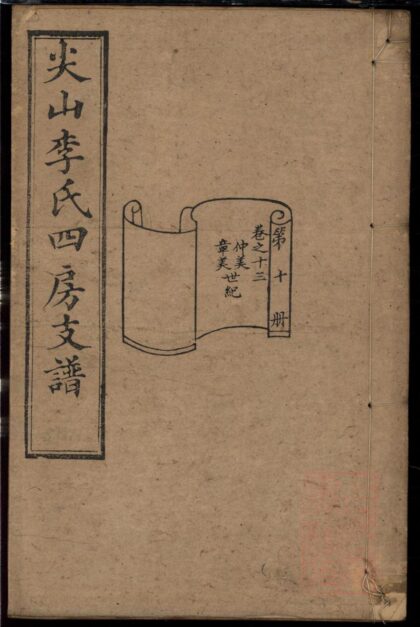 尖山李氏四房支譜
第十册
卷之十三
仲美
章美世紀